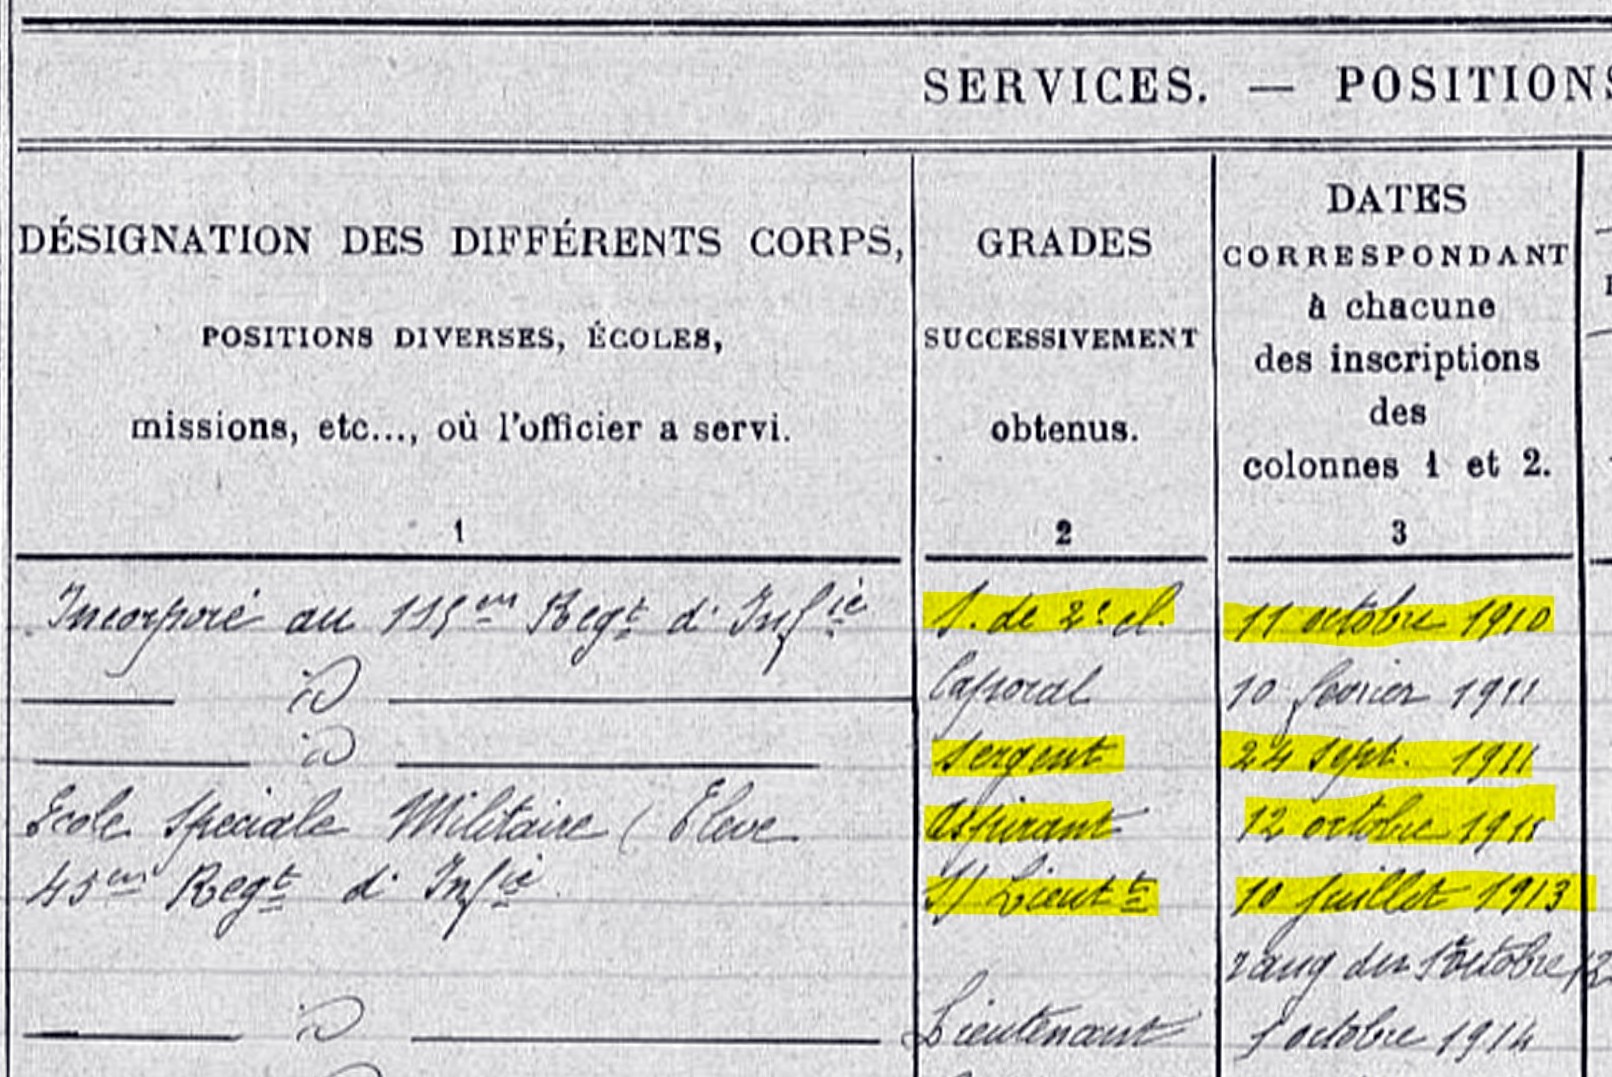 SERVICES. — POSITIONS
DÉSIGNATION DES DIFFÉRENTS CORPS,
POSITIONS DIVERSES, ÉCOLES,
missions, etc..., où l'officier a servi.
1
GRADES
SUCCESSIVEMENT
obtenus.
2
DATES
CORRESPONDANT
à chacune
des inscriptions
des
colonnes 1 et 2.
3
Incorporé au 115em Regt d'Infie S. de 2e cl. 11 octobre 1910
id Caporal 10 fevrier 1911
id Sergent 24 Sept. 1911
Ecole Spéciale Militaire ( Eleve Aspirant 12 octobre 1911
45em Regt d'Infie S/ Lieutt 10 Juillet 1913
rang du 1er octobre 12
id Lieutenant 1 octobre 1914